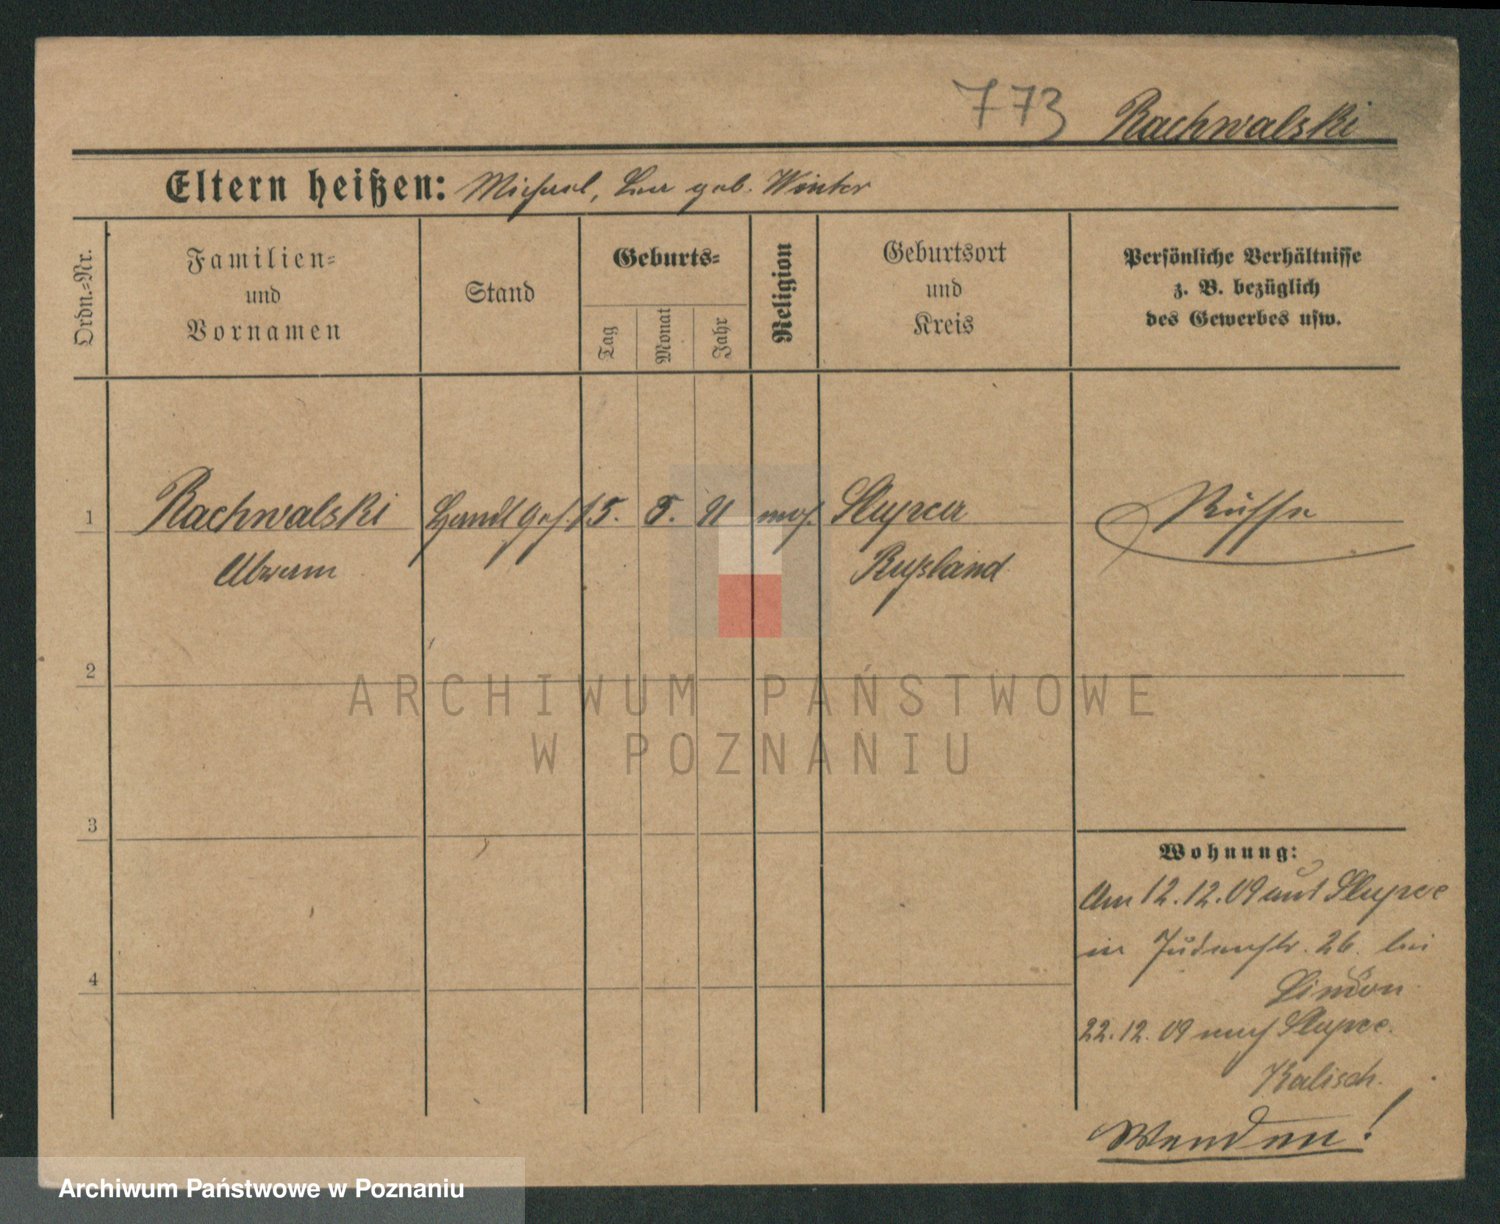 773 Rachwalski
Eltern heißen: Michael, Lea geb. Winter
Ordn.-Nr.
Familien-
und
Vornamen
Stand
Geburts-
Tag
Monat
Jahr
Religion
Geburtsort
und
Kreis
Persönliche Verhältnisse
z. B. bezüglich
des Gewerbes usw.
1 Rachwalski Handl. Geh. 15. 5. 91 mos. Slupca Russe
Abram Rußland
2
3
4
Wohnung:
Am 12.12.09 aus Slupce
in Judenstr. 26. bei
22.12.09 nach Slupce.
Kalisch.
Wenden!
ARCHIWUM PAŃSTWOWE
W POZNANIU
Archiwum Państwowe w Poznaniu